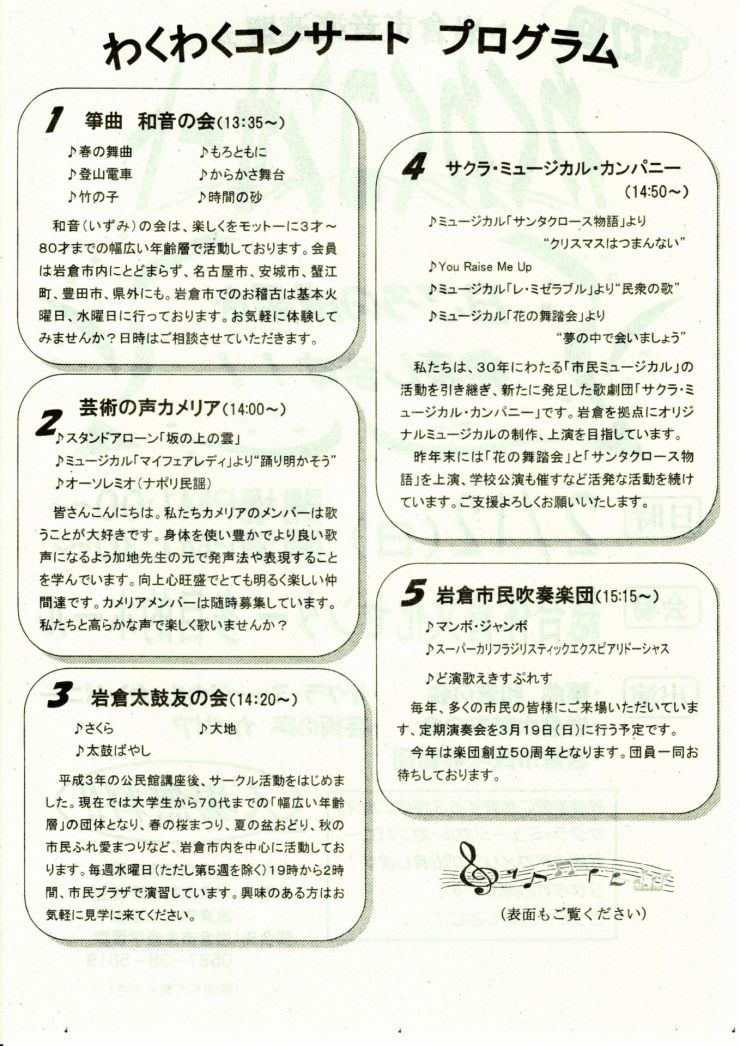 わくわくコンサート プログラム
1 箏曲 和音の会(13:35～)
♪春の舞曲 ♪もろともに
♪登山電車 ♪からかさ舞台
♪竹の子 ♪時間の砂
和音(いずみ)の会は、楽しくをモットーに3才～
80才までの幅広い年齢層で活動しております。会員
は岩倉市内にとどまらず、名古屋市、安城市、蟹江
町、豊田市、県外にも。岩倉市でのお稽古は基本火
曜日、水曜日に行っております。お気軽に体験して
みませんか？日時はご相談させていただきます。
2 芸術の声カメリア(14:00～)
♪スタンドアローン「坂の上の雲」
♪ミュージカル「マイフェアレディ」より“踊り明かそう”
♪オーソレミオ(ナポリ民謡)
皆さんこんにちは。私たちカメリアのメンバーは歌
うことが大好きです。身体を使い豊かでより良い歌
声になるよう加地先生の元で発声法や表現すること
を学んでいます。向上心旺盛でとても明るく楽しい仲
間達です。カメリアメンバーは随時募集しています。
私たちと高らかな声で楽しく歌いませんか？
3 岩倉太鼓友の会(14:20～)
♪さくら ♪大地
♪太鼓ばやし
平成3年の公民館講座後、サークル活動をはじめま
した。現在では大学生から70代までの「幅広い年齢
層」の団体となり、春の桜まつり、夏の盆おどり、秋の
市民ふれ愛まつりなど、岩倉市内を中心に活動してお
ります。毎週水曜日(ただし第5週を除く)19時から2時
間、市民プラザで演習しています。興味のある方はお
気軽に見学に来てください。
4 サクラ・ミュージカル・カンパニー
(14:50～)
♪ミュージカル「サンタクロース物語」より
“クリスマスはつまんない”
♪You Raise Me Up
♪ミュージカル「レ・ミゼラブル」より“民衆の歌”
♪ミュージカル「花の舞踏会」より
“夢の中で会いましょう”
私たちは、30年にわたる「市民ミュージカル」の
活動を引き継ぎ、新たに発足した歌劇団「サクラ・ミ
ュージカル・カンパニー」です。岩倉を拠点にオリジ
ナルミュージカルの制作、上演を目指しています。
昨年末には「花の舞踏会」と「サンタクロース物
語」を上演、学校公演も催すなど活発な活動を続け
ています。ご支援よろしくお願いいたします。
5 岩倉市民吹奏楽団(15:15～)
♪マンボ・ジャンボ
♪スーパーカリフラジリスティックエクスピアリドーシャス
♪ど演歌えきすぷれす
毎年、多くの市民の皆様にご来場いただいていま
す、定期演奏会を3月19日(日)に行う予定です。
今年は楽団創立50周年となります。団員一同お
待ちしております。
(表面もご覧ください)